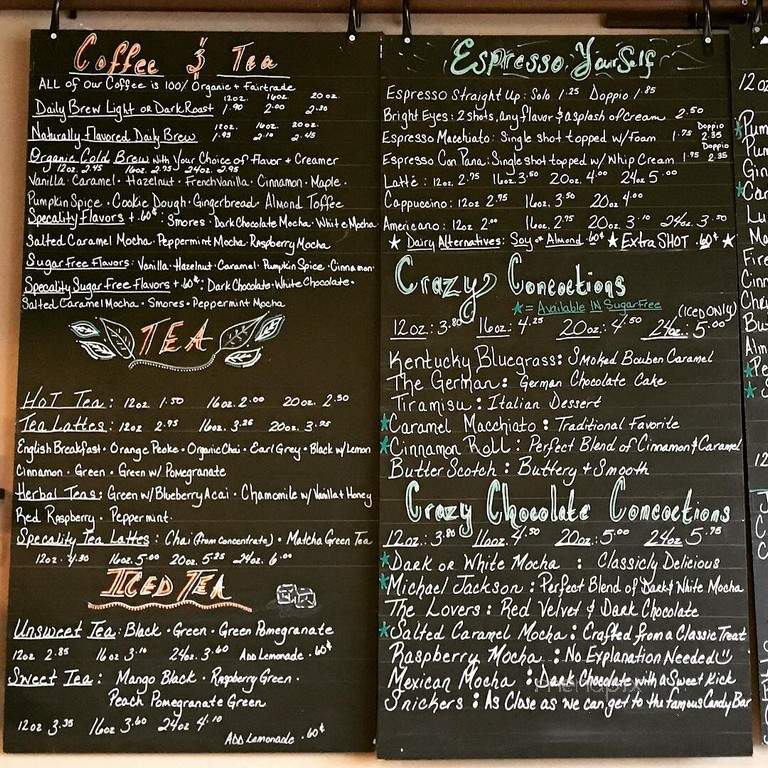 Coffee & Tea
ALL of Our Coffee is 100% Organic + Fairtrade
12oz. 16oz 20oz
Daily Brew Light or Dark Roast 1.90 2.00 2.30
12oz. 16oz. 20oz.
Naturally Flavored Daily Brew 1.95 2.10 2.45
Organic Cold Brew with Your Choice of Flavor + Creamer
12oz. 2.45 16oz. 2.75 24oz. 2.95
Vanilla · Caramel · Hazelnut · French Vanilla · Cinnamon · Maple ·
Pumpkin Spice · Cookie Dough · Gingerbread · Almond Toffee
Speciality Flavors + .60¢ : Smores · Dark Chocolate Mocha · White Mocha
Salted Caramel Mocha · Peppermint Mocha · Raspberry Mocha
Sugar Free Flavors: Vanilla · Hazelnut · Caramel · Pumpkin Spice · Cinnamon ·
Speciality Sugar Free Flavors + .60¢ : Dark Chocolate · White Chocolate ·
Salted Caramel Mocha · Smores · Peppermint Mocha
TEA
Hot Tea : 12oz 1.50 16oz. 2.00 20oz. 2.50
Tea Lattes : 12oz 2.75 16oz. 3.25 20oz. 3.75
English Breakfast · Orange Peoke · Organic Chai · Earl Grey · Black w/ Lemon
Cinnamon · Green · Green w/ Pomegranate
Herbal Teas: Green w/ Blueberry Acai · Chamomile w/ Vanilla & Honey
Red Raspberry · Peppermint ·
Speciality Tea Lattes : Chai (from concentrate) · Matcha Green Tea
12oz · 4.30 16oz. 5.00 20oz. 5.25 24oz. 6.00
ICED TEA
Unsweet Tea : Black · Green · Green Pomegranate
12oz 2.85 16oz 3.10 24oz. 3.60 Add Lemonade .60¢
Sweet Tea : Mango Black · Raspberry Green ·
Peach Pomegranate Green
12oz 3.35 16oz 3.60 24oz 4.10
Add Lemonade .60¢
Espresso Yourself
Espresso Straight Up : Solo 1.25 Doppio 1.85
Bright Eyes : 2 shots, any flavor & a splash of cream 2.50
Espresso Macchiato : Single shot topped w/ Foam 1.75 Doppio 2.35
Espresso Con Pana : Single shot topped w/ Whip Cream 1.75 Doppio 2.35
Latte : 12oz 2.75 16oz 3.50 20oz. 4.00 24oz 5.00
Cappuccino : 12oz 2.75 16oz. 3.50 20oz 4.00
Americano : 12oz 2.00 16oz. 2.75 20oz 3.10 24oz 3.50
★ Dairy Alternatives: Soy or Almond .60¢ ★ Extra SHOT .60¢ ★
Crazy Concoctions
★ = Available IN Sugar Free
(ICED ONLY)
12oz.: 3.80 16oz.: 4.25 20oz.: 4.50 24oz.: 5.00
Kentucky Bluegrass : Smoked Bouben Caramel
The German : German Chocolate Cake
Tiramisu : Italian Dessert
★ Caramel Macchiato : Traditional Favorite
★ Cinnamon Roll : Perfect Blend of Cinnamon & Caramel
Butter Scotch : Buttery + Smooth
Crazy Chocolate Concoctions
12oz.: 3.80 16oz.: 4.50 20oz.: 5.00 24oz 5.75
★ Dark or White Mocha : Classicly Delicious
★ Michael Jackson : Perfect Blend of Dark & White Mocha
The Lovers : Red Velvet & Dark Chocolate
★ Salted Caramel Mocha : Crafted from a Classic Treat
Raspberry Mocha : No Explanation Needed
Mexican Mocha : Dark Chocolate with a Sweet Kick
Snickers : As Close as we can get to the famous Candy Bar